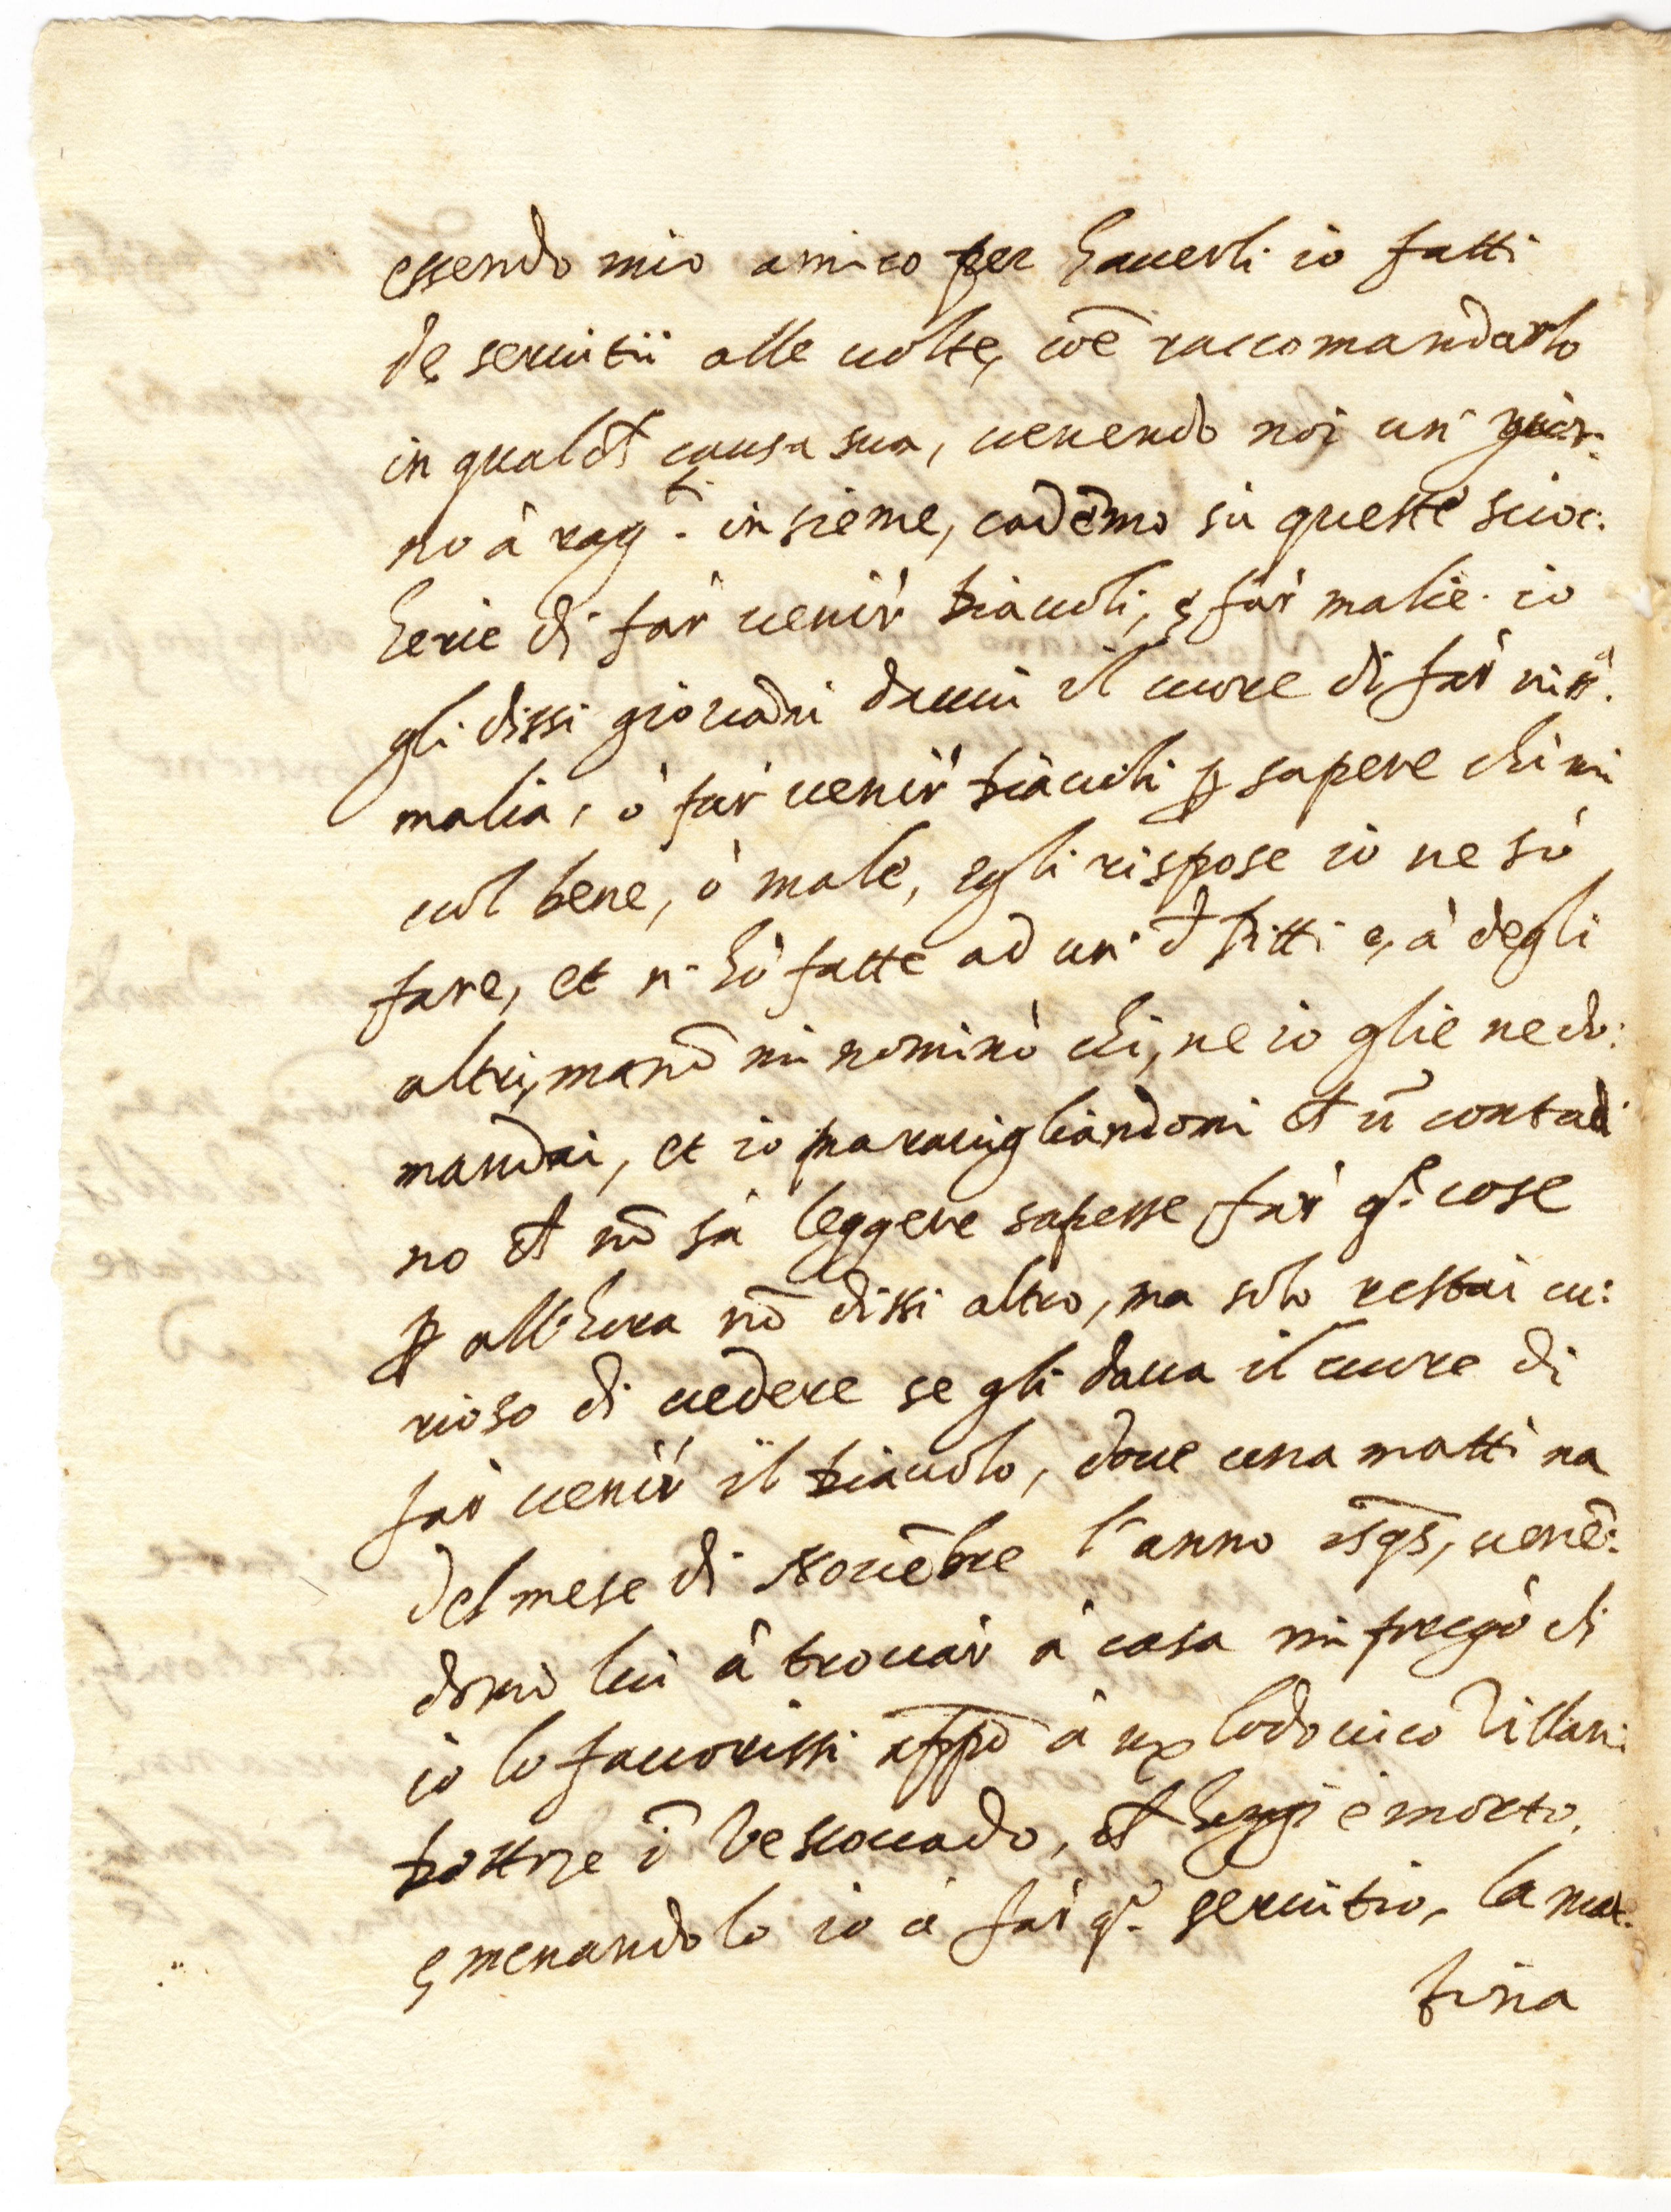 essendo mio amico per haverli io fatti
de servitii alle volte, coē raccomandarlo
in qualch causa sua, venendo noi un' gior:
no à rag.̄ insieme, cadēmo sù queste scioc:
herie di far' venir' diavoli, e far malie. io
gli dissi giovādni davvi il cuore di far'
malia, ò far' venir' diavoli ꝑ sapere chi mi
vol bene, ò male, egli rispose io ne sò
fare, et n' hò fatte ad un' d Pitti e, à degli
altri, ma nō mi nominò chi, ne io glie ne do:
mandai, et io maravigliandomi ch ū contadi
no ch nō sà leggere sapesse far' q.e cose
ꝑ all'hora nō dissi altro, ma solo restai cu:
rioso di vedere se gli dava il cuore di
far venir' il diavolo, dove una mattina
del mese di Novēbre l'anno 1595, venē:
domi lui à trovar à casa mi pregò ch
io lo favorissi appō à Lodovico Villani
dottore ī Vescovado, ch hoggi è morto,
e menandolo io à far q.o servitio, la mat:
tina